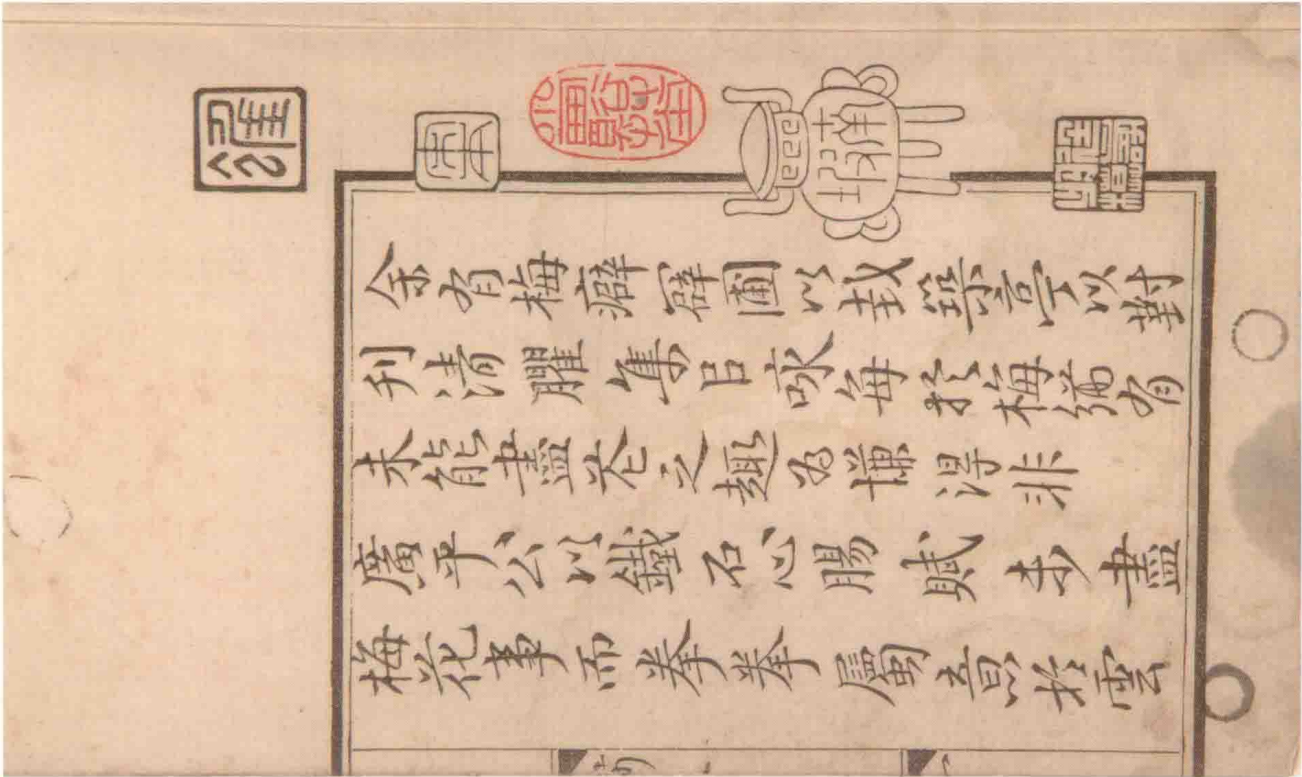 余有梅癖辟圃以栽築亭以對
刊清臞集以咏每於梅猶有
未能盡花之趣為慊得非
廣平公以鐵石心腸賦未盡
梅花事而拳拳屬意於雲